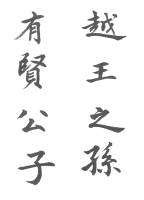 越王之孫
有賢公子